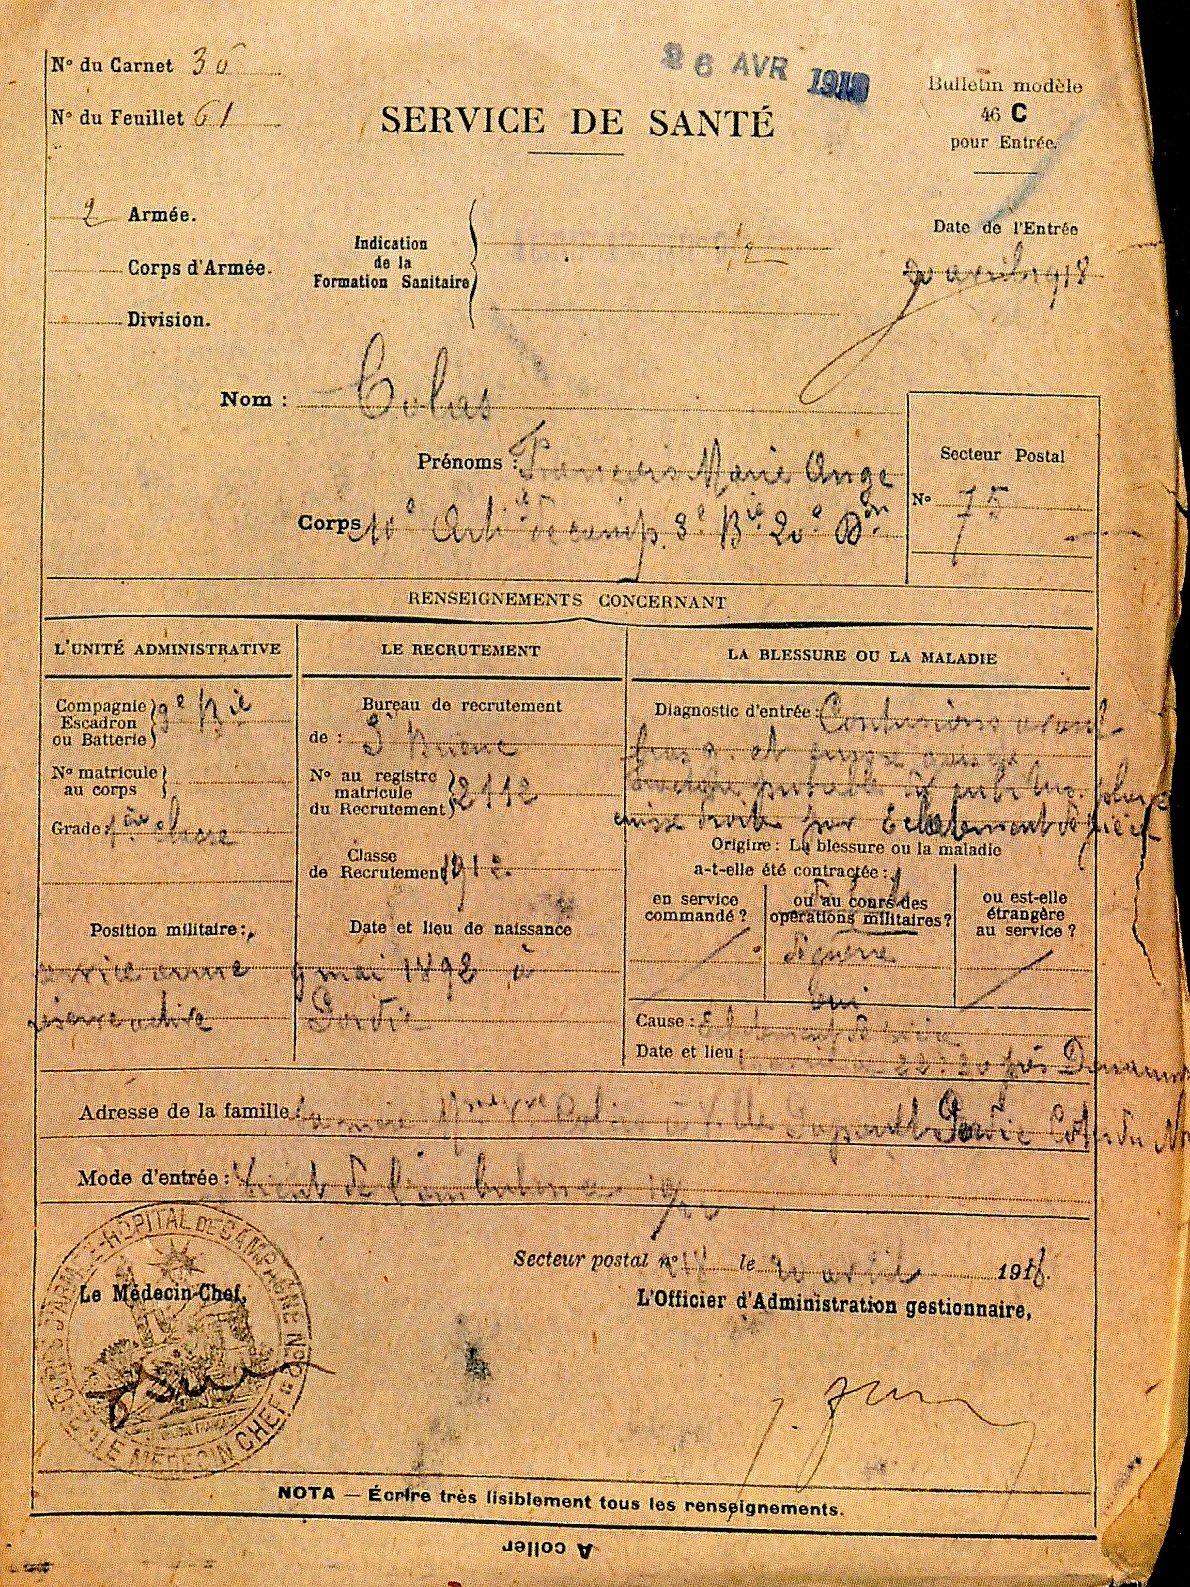 N° du Carnet 30
N° du Feuillet 61
26 AVR 1918
Bulletin modèle
46 C
pour Entrée.
SERVICE DE SANTÉ
2 Armée.
Corps d'Armée.
Division.
Indication
de la
Formation Sanitaire
Date de l'Entrée
20 avril 1918
Nom : Colas
Prénoms : François Marie Ange
Corps 10e Artie de camp. 8e Bie 20e Don
Secteur Postal
N° 75
RENSEIGNEMENTS CONCERNANT
L'UNITÉ ADMINISTRATIVE
Compagnie
Escadron
ou Batterie 9e Bie
N° matricule
au corps
Grade : 1ère classe
Position militaire :
service armé
réserve active
LE RECRUTEMENT
Bureau de recrutement
de : St Brieuc
N° au registre
matricule
du Recrutement 2112
Classe
de Recrutement 1912
Date et lieu de naissance
9 mai 1892 à
Pordic
LA BLESSURE OU LA MALADIE
Diagnostic d'entrée : Contusions avant
bras g. et
probable
cuisse droite par Eclatement de pièce
Origine : La blessure ou la maladie
a-t-elle été contractée :
en service
commandé ?
ou au cours des
opérations militaires ?
de guerre
oui
ou est-elle
étrangère
au service ?
Cause : Eclatement de pièce
Date et lieu : 22h30 près
Adresse de la famille la mère Mme Vve Colas à Pordic Côtes du N
Mode d'entrée : Vient de l'ambulance
CORPS D'ARMÉE - HOPITAL DE CAMPAGNE N°
LE MÉDECIN CHEF
Le Médecin-Chef,
Secteur postal n° le 20 avril 1918.
L'Officier d'Administration gestionnaire,
NOTA — Écrire très lisiblement tous les renseignements.
A coller